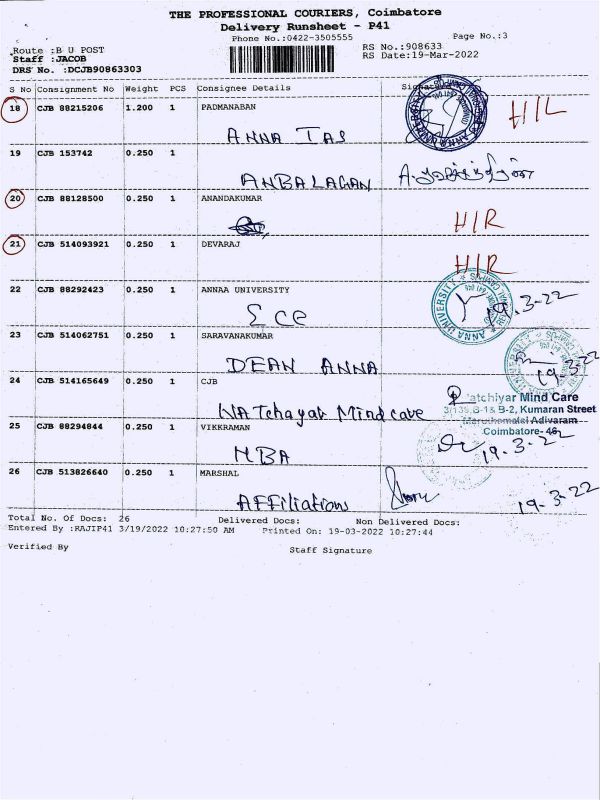 THE PROFESSIONAL COURIERS, Coimbatore
Delivery Runsheet - P41
Phone No.:0422-3505555
Page No.:3
Route :B U POST
Staff :JACOB
DRS No. :DCJB90863303
RS No.:908633
RS Date:19-Mar-2022
S No Consignment No Weight PCS Consignee Details Signature
18 CJB 88215206 1.200 1 PADMANABAN H/L
ANNA
19 CJB 153742 0.250 1
ANBALAGAN
20 CJB 88128500 0.250 1 ANANDAKUMAR H/R
21 CJB 514093921 0.250 1 DEVARAJ H/R
22 CJB 88292423 0.250 1 ANNAA UNIVERSITY
ECE 19.3-22
23 CJB 514062751 0.250 1 SARAVANAKUMAR
DEAN ANNA 19-3-22
24 CJB 514165649 0.250 1 CJB
Natchayar Mind care
atchiyar Mind Care
3/139,B-1& B-2, Kumaran Street
Maruthamalai Adivaram
Coimbatore- 46
25 CJB 88294844 0.250 1 VIKKRAMAN
MBA 19.3-22
26 CJB 513826640 0.250 1 MARSHAL
Affiliation 19-3-22
Total No. Of Docs: 26 Delivered Docs: Non Delivered Docs:
Entered By :RAJIP41 3/19/2022 10:27:50 AM Printed On: 19-03-2022 10:27:44
Verified By Staff Signature